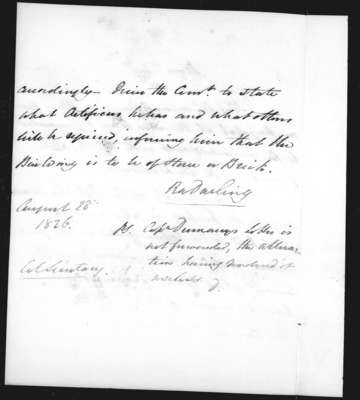 accordingly— Desire the Comt. to state
what Artificers he has and what others
will be required, informing him that the
Building is to be of Stone or Brick.
Ra Darling
August 28
1826.
Capt. Dumaresq's letter is
not forwarded, the
having rendered it
Col Secretary